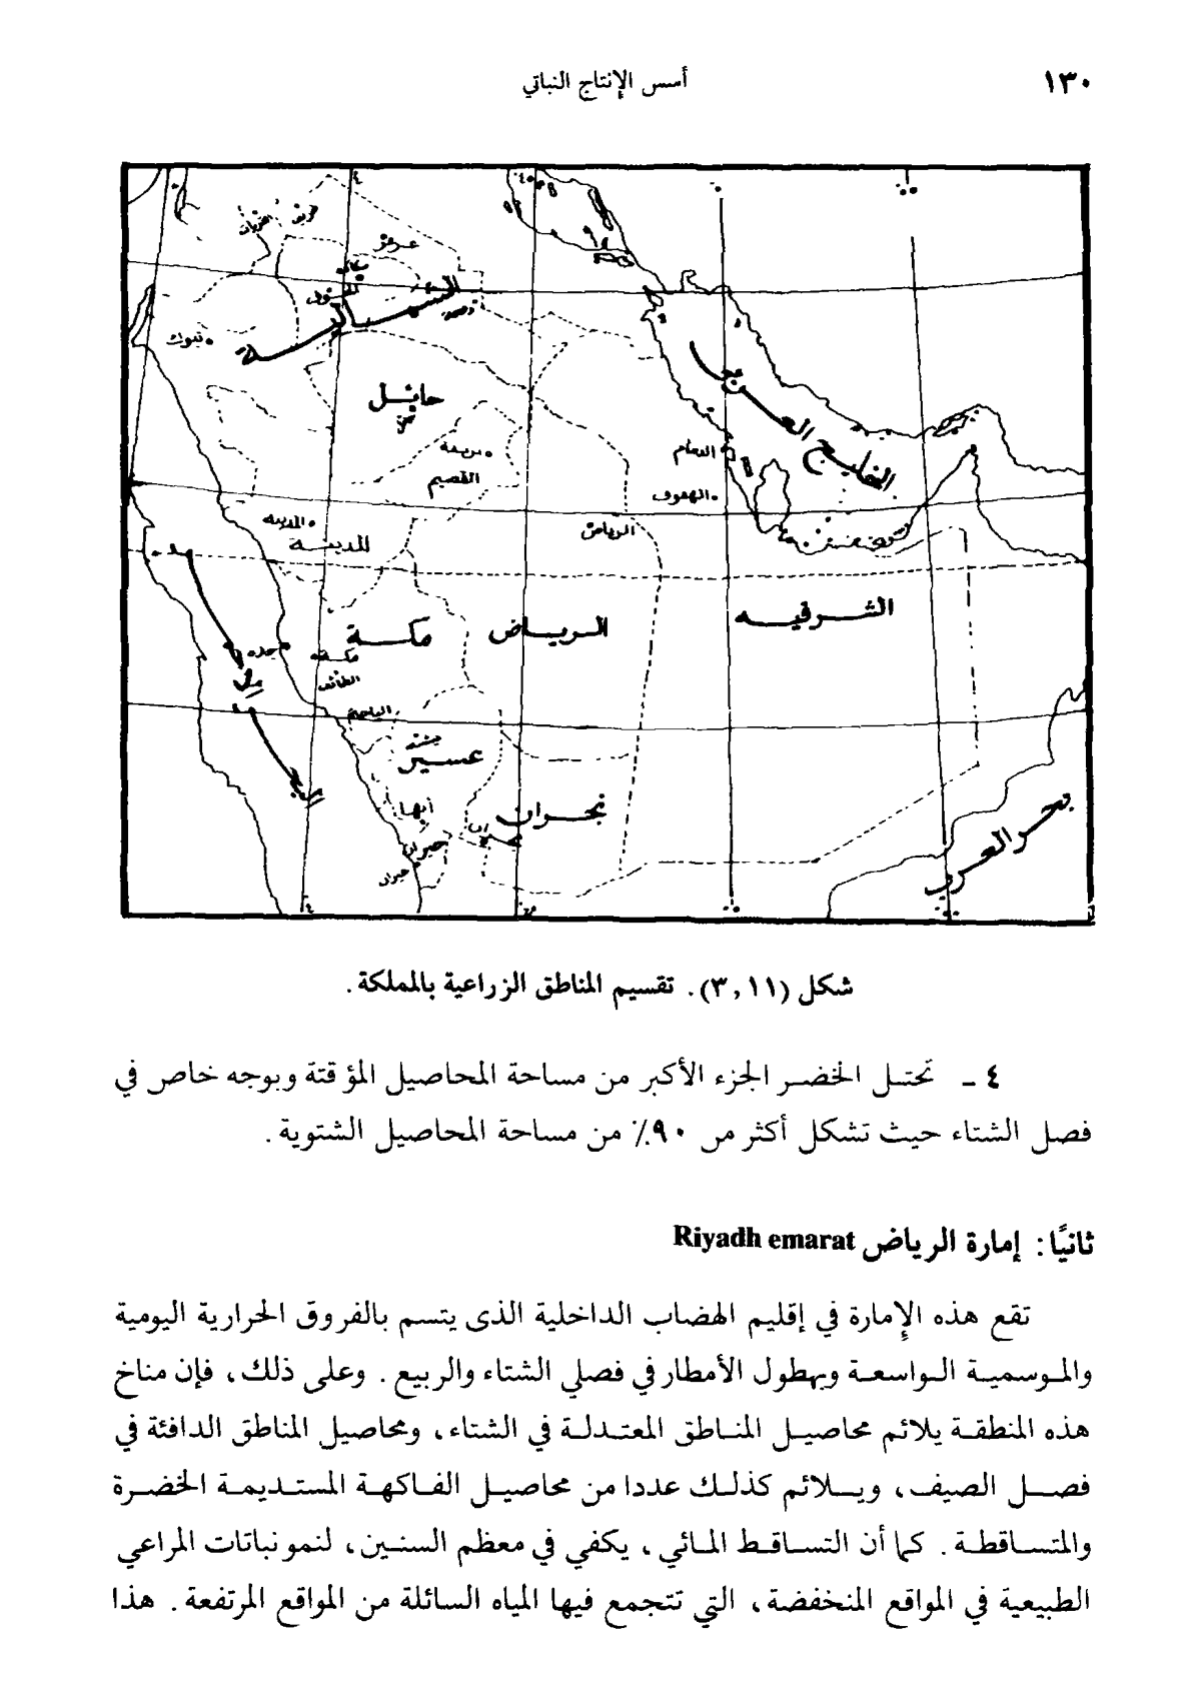 ١٣٠
أسس الإنتاج النباتي
عرعر
سكاكا
الجوف
الشمالية
تبوك
حائل
بريدة
القصيم
الدمام
الهفوف
الخليج العربي
المدينه
المدينة
الرياض
مكة
الرياض
الشرقيه
جده
مكة
الطائف
الباحة
عسير
أبها
نجران
جيزان
جيزان
بحر العرب
شكل (٣,١١). تقسيم المناطق الزراعية بالمملكة.
٤ - تحتل الخضر الجزء الأكبر من مساحة المحاصيل المؤقتة وبوجه خاص في
فصل الشتاء حيث تشكل أكثر من ٩٠٪ من مساحة المحاصيل الشتوية.
ثانيًا: إمارة الرياض Riyadh emarat
تقع هذه الإِمارة في إقليم الهضاب الداخلية الذى يتسم بالفروق الحرارية اليومية
والموسمية الواسعة وبهطول الأمطار في فصلي الشتاء والربيع. وعلى ذلك، فإن مناخ
هذه المنطقة يلائم محاصيل المناطق المعتدلة في الشتاء، ومحاصيل المناطق الدافئة في
فصل الصيف، ويلائم كذلك عددا من محاصيل الفاكهة المستديمة الخضرة
والمتساقطة. كما أن التساقط المائي، يكفي في معظم السنين، لنمو نباتات المراعي
الطبيعية في المواقع المنخفضة، التي تتجمع فيها المياه السائلة من المواقع المرتفعة. هذا